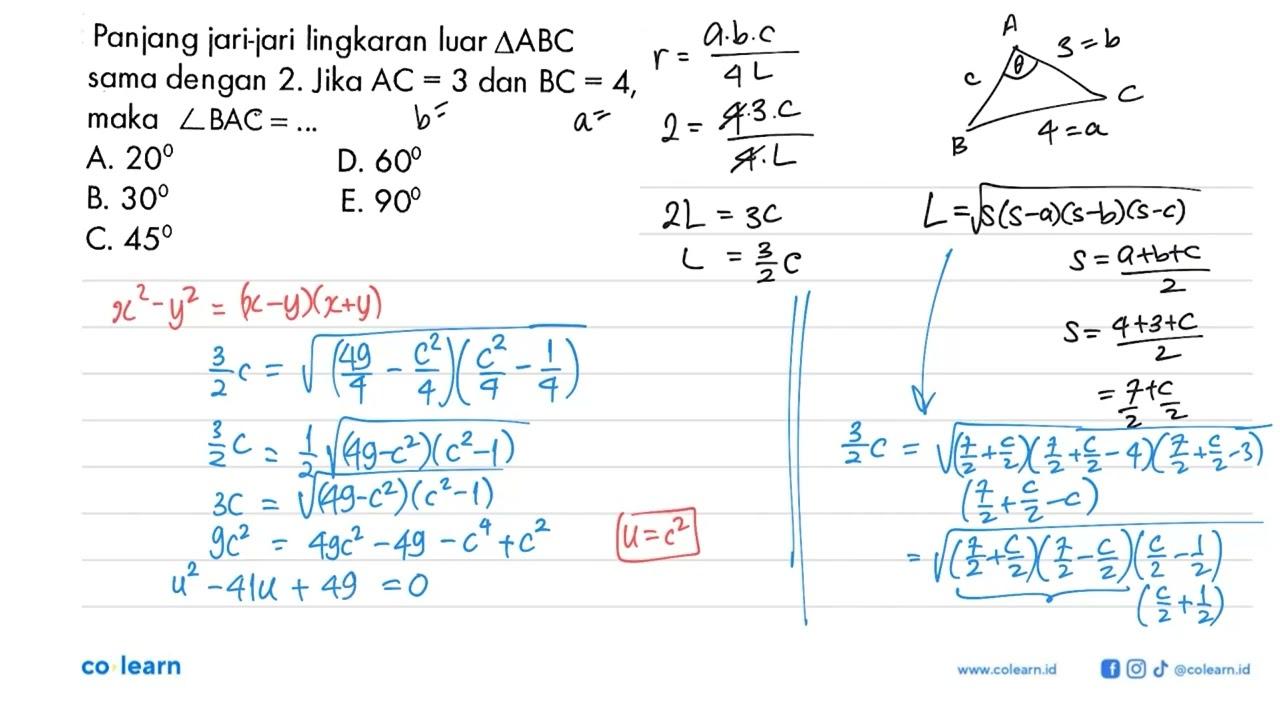 Panjang jari-jari lingkaran luar △ABC
sama dengan 2. Jika AC = 3 dan BC = 4,
maka ∠BAC = ...
b=
a=
A. 20⁰
D. 60⁰
B. 30⁰
E. 90⁰
C. 45⁰
r = a.b.c / 4L
2 = 4.3.c / 4.L
2L = 3c
L = 3/2 c
A
θ
3 = b
c
C
B
4 = a
L = √s(s-a)(s-b)(s-c)
s = a+b+c / 2
s = 4+3+c / 2
= 7/2 + c/2
3/2 c = √(7/2 + c/2)(7/2 + c/2 - 4)(7/2 + c/2 - 3)
(7/2 + c/2 - c)
= √(7/2 + c/2)(7/2 - c/2)(c/2 - 1/2)
(c/2 + 1/2)
x² - y² = (x-y)(x+y)
3/2 c = √(49/4 - c²/4)(c²/4 - 1/4)
3/2 c = 1/2 √(49-c²)(c²-1)
3c = √(49-c²)(c²-1)
9c² = 49c² - 49 - c⁴ + c²
u = c²
u² - 41u + 49 = 0
co learn
www.colearn.id
@colearn.id